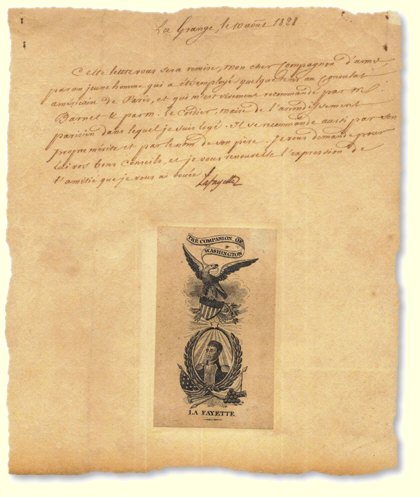 La Grange, le 10 août 1828
Cette lettre vous sera remise, mon cher Compagnon d'armes
par un jeune homme qui a été employé quelque tems au consulat
américain de Paris, et qui m'est vivement recommandé par m
Barnet & par m. le Cordier, maire de l'arrondissement
parisien dans lequel je suis logé. Il se recommande aussi par son
propre mérite et par le nom de son père. Je vous demande pour
lui vos bons conseils, et je vous renouvelle l'expression de
l'amitié que je vous ai vouée.
Lafayette
THE COMPANION OF
WASHINGTON
LA FAYETTE.